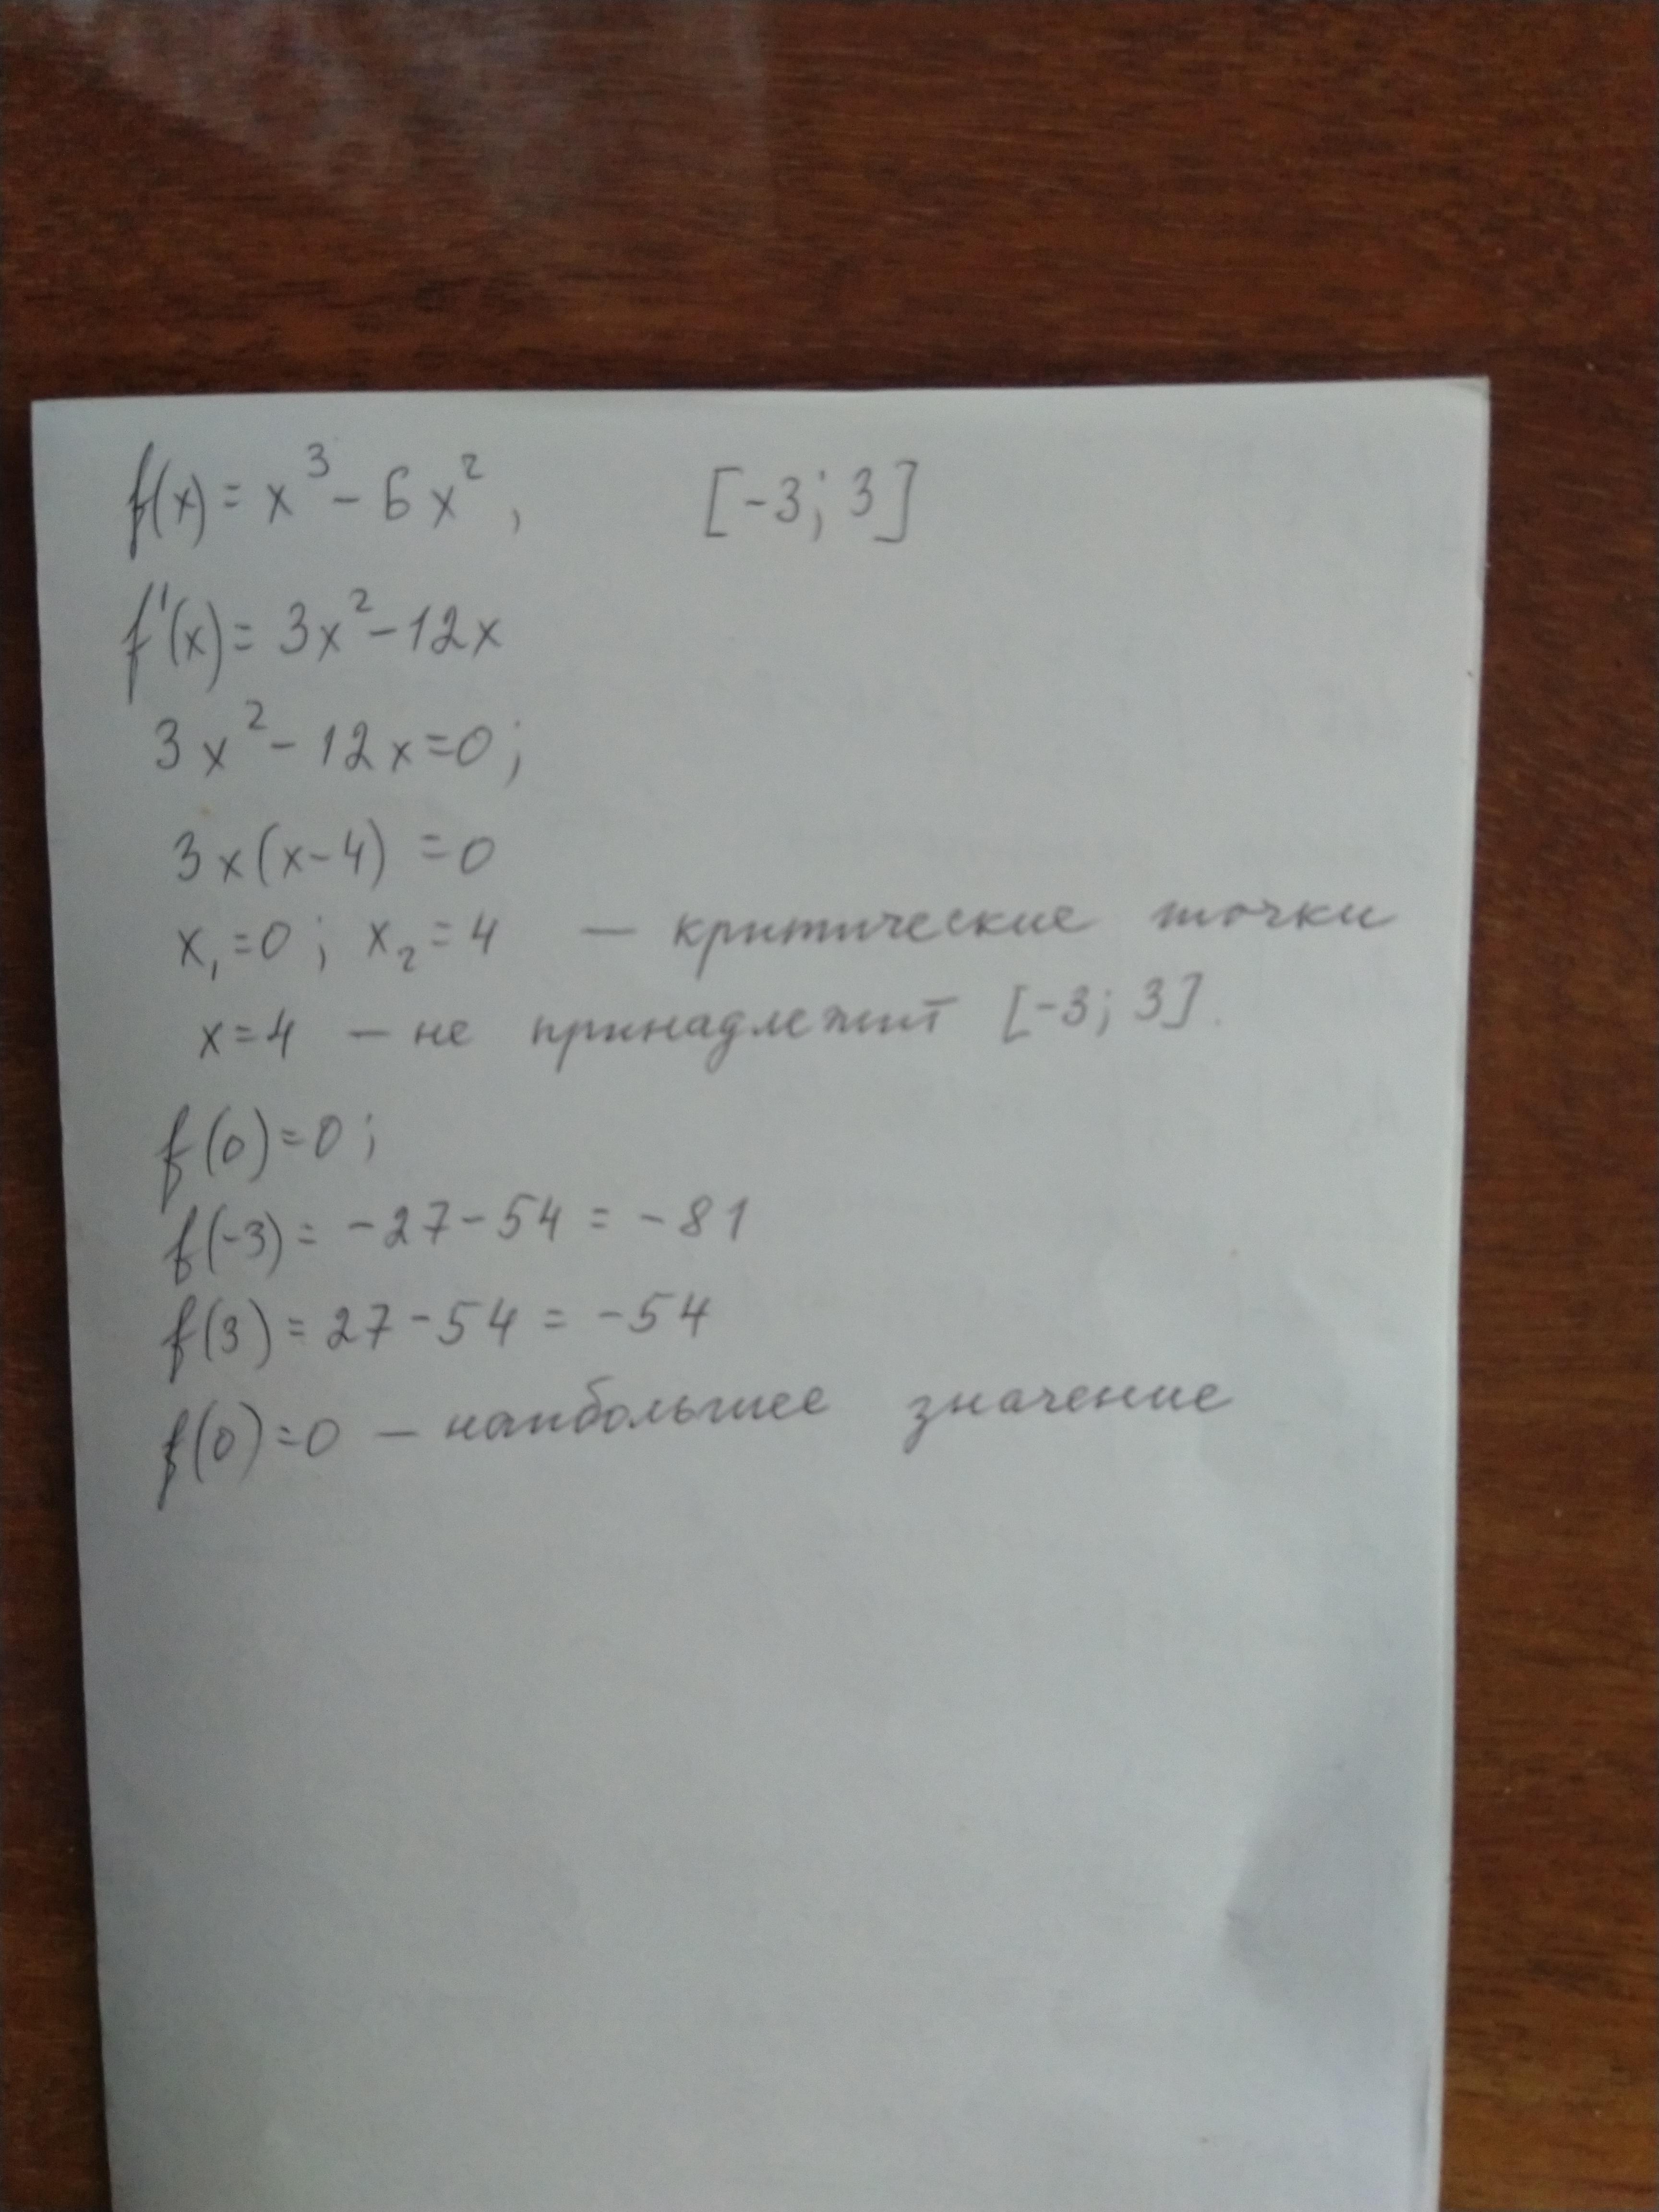 f(x) = x³ - 6x², [-3; 3]
f'(x) = 3x² - 12x
3x² - 12x = 0;
3x(x - 4) = 0
x₁ = 0; x₂ = 4 — критические точки
x = 4 — не принадлежит [-3; 3].
f(0) = 0;
f(-3) = -27 - 54 = -81
f(3) = 27 - 54 = -54
f(0) = 0 — наибольшее значение